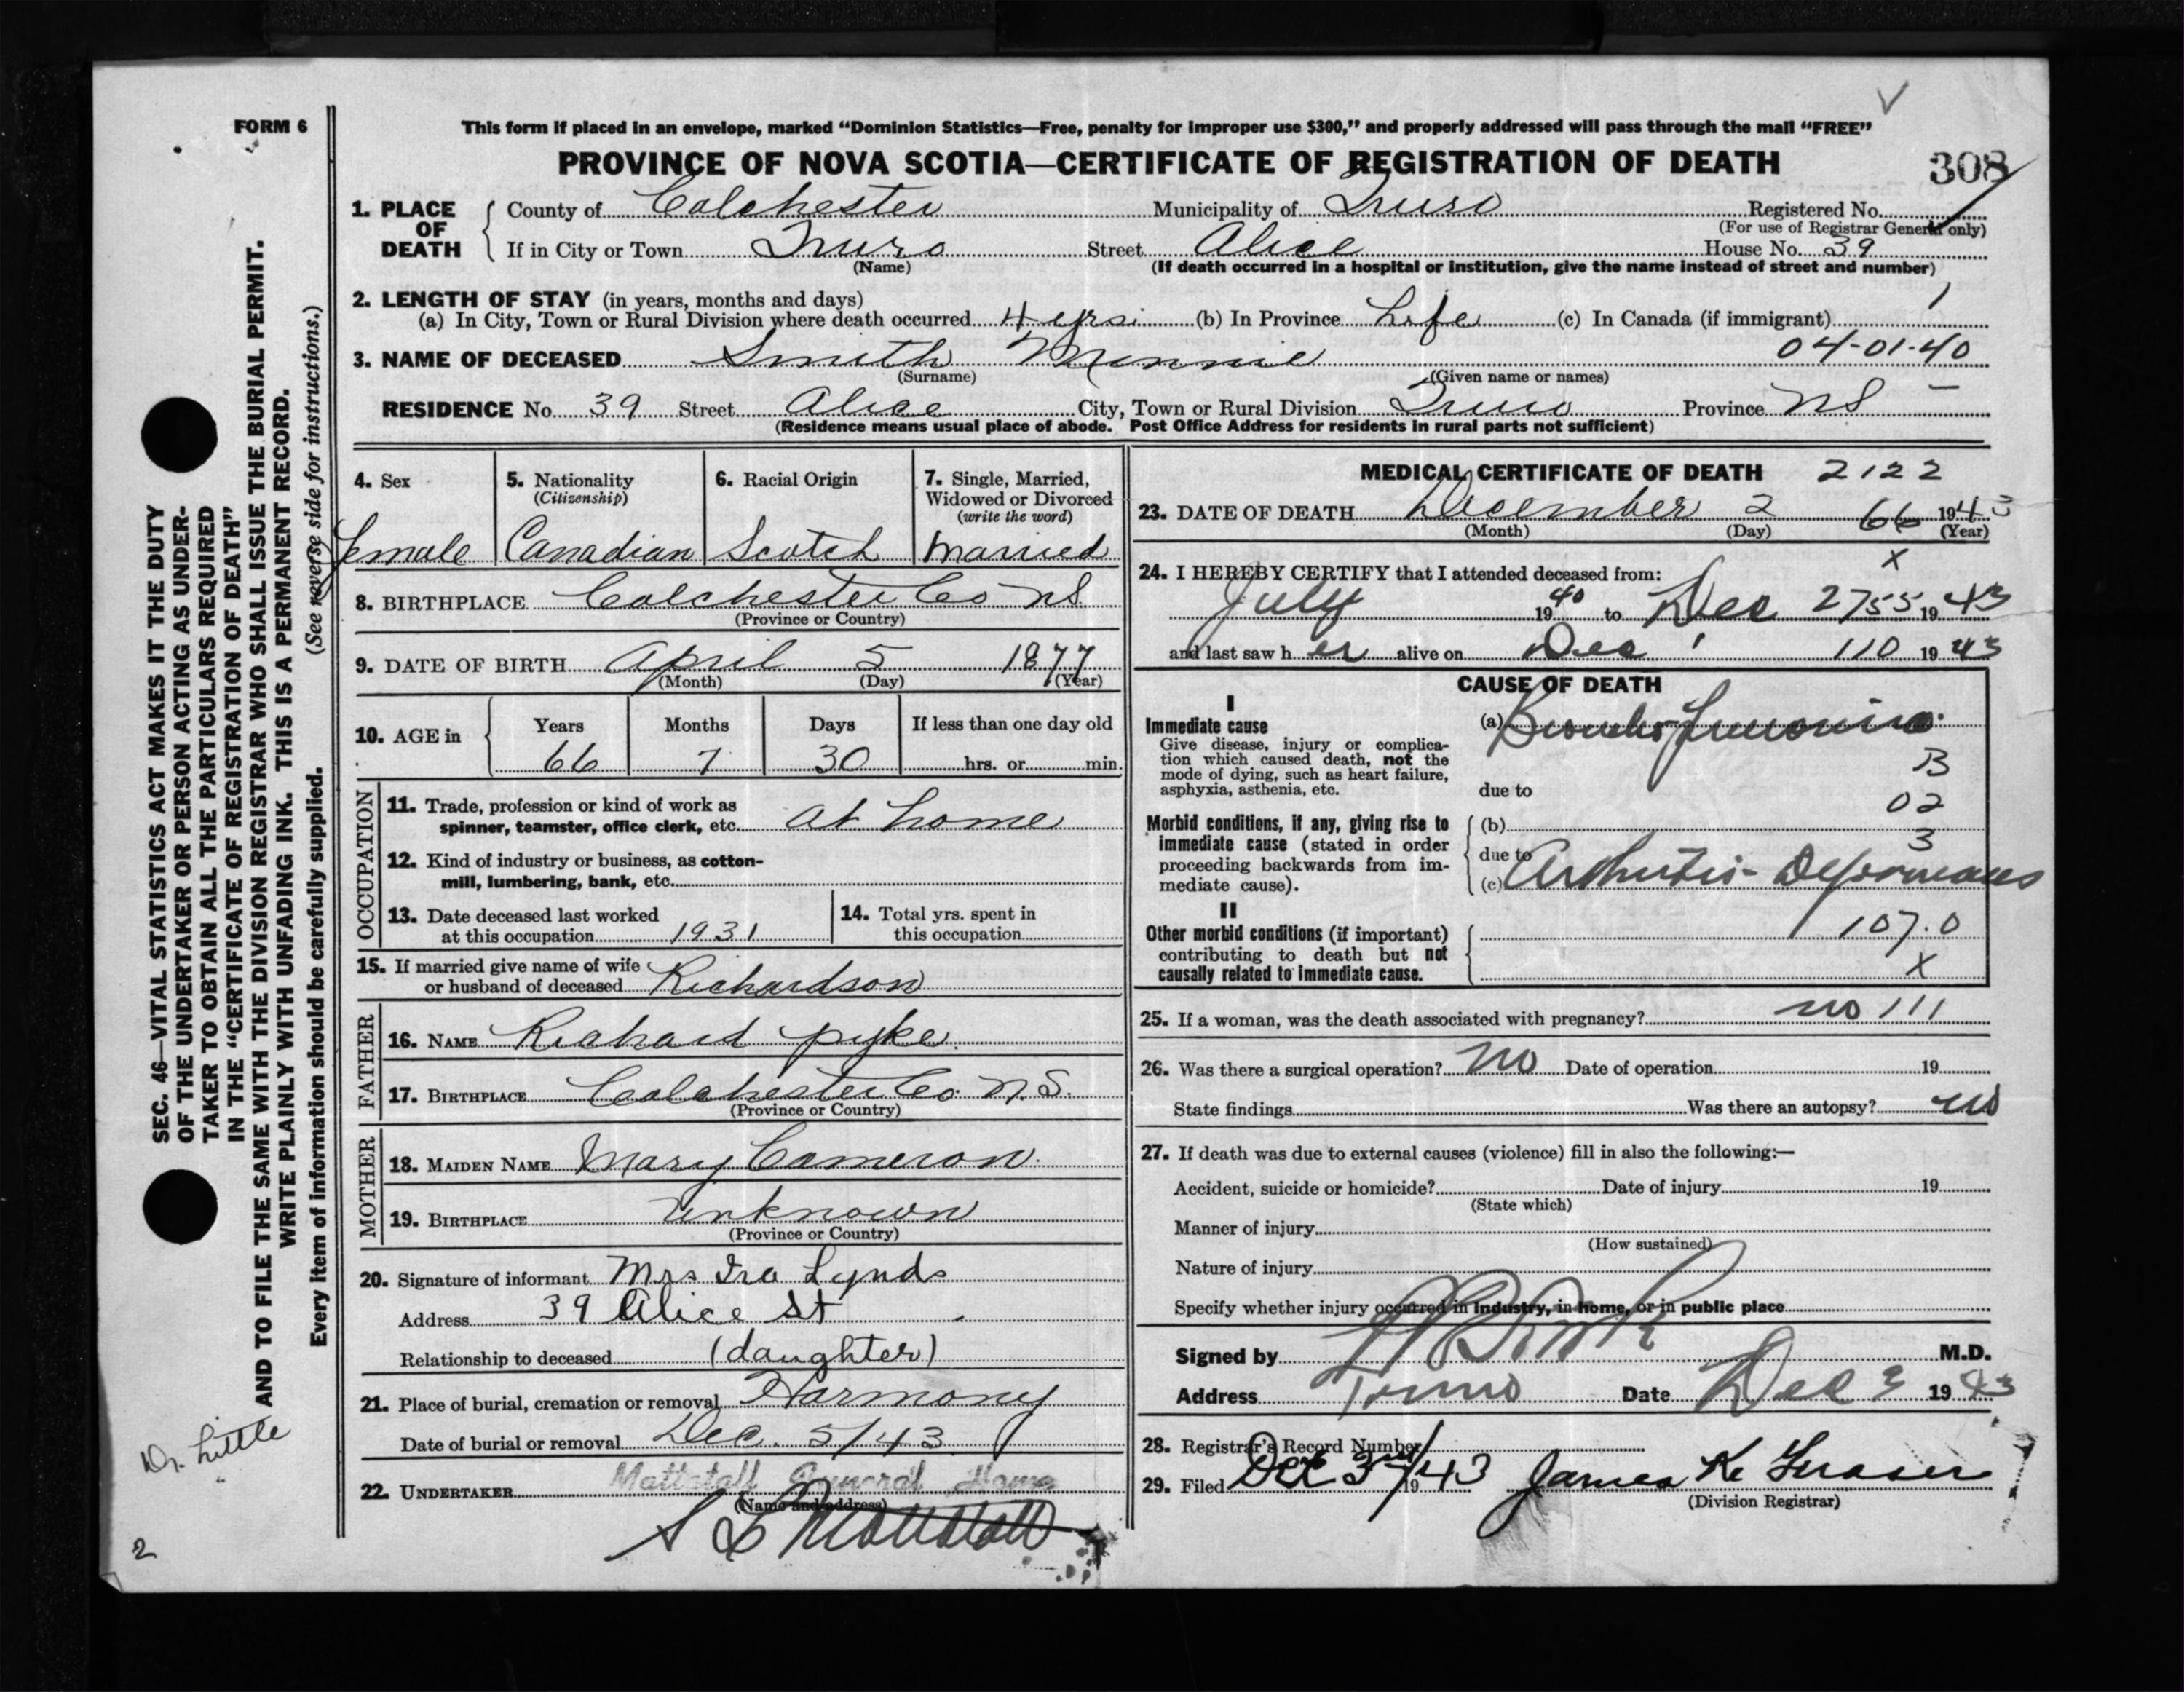 FORM 6
This form if placed in an envelope, marked “Dominion Statistics—Free, penalty for improper use $300,” and properly addressed will pass through the mail “FREE”
PROVINCE OF NOVA SCOTIA—CERTIFICATE OF REGISTRATION OF DEATH
308
1. PLACE OF DEATH
County of Colchester Municipality of Truro Registered No.
(For use of Registrar General only)
If in City or Town Truro Street Alice House No. 39
(Name) (If death occurred in a hospital or institution, give the name instead of street and number)
2. LENGTH OF STAY (in years, months and days)
(a) In City, Town or Rural Division where death occurred 4 yrs. (b) In Province Life (c) In Canada (if immigrant) 1
3. NAME OF DECEASED Smith Minnie 04-01-40
(Surname) (Given name or names)
RESIDENCE No 39 Street Alice City, Town or Rural Division Truro Province NS —
(Residence means usual place of abode. Post Office Address for residents in rural parts not sufficient)
4. Sex
Female
5. Nationality
(Citizenship)
Canadian
6. Racial Origin
Scotch
7. Single, Married,
Widowed or Divorced
(write the word)
Married
8. BIRTHPLACE Colchester Co NS
(Province or Country)
9. DATE OF BIRTH April 5 1877
(Month) (Day) (Year)
10. AGE in
Years Months Days If less than one day old
66 7 30 hrs. or min.
OCCUPATION
11. Trade, profession or kind of work as
spinner, teamster, office clerk, etc. at home
12. Kind of industry or business, as cotton-
mill, lumbering, bank, etc.
13. Date deceased last worked
at this occupation 1931
14. Total yrs. spent in
this occupation
15. If married give name of wife
or husband of deceased Richardson
FATHER
16. NAME Richard pyke.
17. BIRTHPLACE Colchester Co. N.S.
(Province or Country)
MOTHER
18. MAIDEN NAME Mary Cameron.
19. BIRTHPLACE unknown
(Province or Country)
20. Signature of informant Mrs Ira Lynds
Address 39 Alice St
Relationship to deceased (daughter)
21. Place of burial, cremation or removal Harmony
Date of burial or removal Dec. 5/43
22. UNDERTAKER Mattatall Funeral Home
(Name and address)
Mattatall
MEDICAL CERTIFICATE OF DEATH 2122
23. DATE OF DEATH December 2 66 1943
(Month) (Day) (Year)
x
24. I HEREBY CERTIFY that I attended deceased from:
July 1940 to Dec 2755 1943
and last saw her alive on Dec 1 110 1943
CAUSE OF DEATH
I
Immediate cause
Give disease, injury or complica-
tion which caused death, not the
mode of dying, such as heart failure,
asphyxia, asthenia, etc.
(a) Broncho Pneumonia.
B
due to
02
Morbid conditions, if any, giving rise to
immediate cause (stated in order
proceeding backwards from im-
mediate cause).
(b)
3
due to
(c) Arthritis - Deformans
II
Other morbid conditions (if important)
contributing to death but not
causally related to immediate cause.
107.0
x
25. If a woman, was the death associated with pregnancy? no 111
26. Was there a surgical operation? No Date of operation 19
State findings Was there an autopsy? no
27. If death was due to external causes (violence) fill in also the following:—
Accident, suicide or homicide? Date of injury 19
(State which)
Manner of injury
(How sustained)
Nature of injury
Specify whether injury occurred in industry, in home, or in public place
Signed by M.D.
Address Truro Date Dec 3 1943
28. Registrar's Record Number
29. Filed Dec 3rd/43 19 James K. Fraser
(Division Registrar)
SEC. 46—VITAL STATISTICS ACT MAKES IT THE DUTY
OF THE UNDERTAKER OR PERSON ACTING AS UNDER-
TAKER TO OBTAIN ALL THE PARTICULARS REQUIRED
IN THE “CERTIFICATE OF REGISTRATION OF DEATH”
AND TO FILE THE SAME WITH THE DIVISION REGISTRAR WHO SHALL ISSUE THE BURIAL PERMIT.
WRITE PLAINLY WITH UNFADING INK. THIS IS A PERMANENT RECORD.
Every item of information should be carefully supplied. (See reverse side for instructions.)
Dr. Little
2